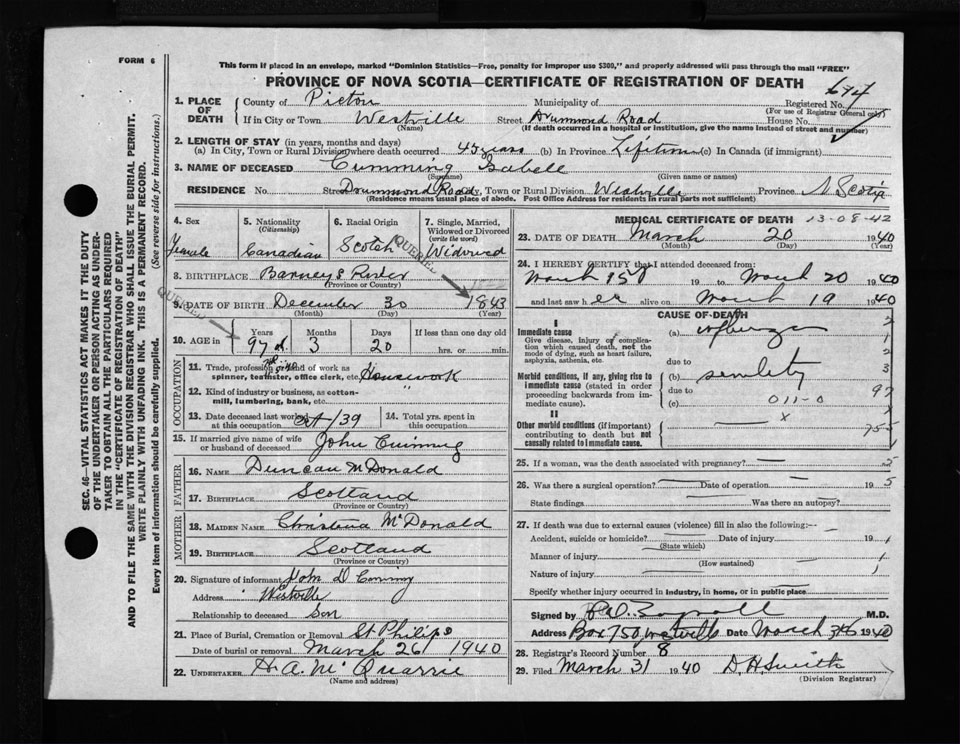 FORM 6
This form if placed in an envelope, marked "Dominion Statistics—Free, penalty for improper use $300," and properly addressed will pass through the mail "FREE"
PROVINCE OF NOVA SCOTIA—CERTIFICATE OF REGISTRATION OF DEATH
SEC. 46—VITAL STATISTICS ACT MAKES IT THE DUTY
OF THE UNDERTAKER OR PERSON ACTING AS UNDER-
TAKER TO OBTAIN ALL THE PARTICULARS REQUIRED
IN THE "CERTIFICATE OF REGISTRATION OF DEATH"
AND TO FILE THE SAME WITH THE DIVISION REGISTRAR WHO SHALL ISSUE THE BURIAL PERMIT.
WRITE PLAINLY WITH UNFADING INK. THIS IS A PERMANENT RECORD.
Every item of information should be carefully supplied. (See reverse side for instructions.)
1. PLACE OF DEATH
County of Pictou Municipality of Registered No. 674
(For use of Registrar General only)
If in City or Town Westville Street Drummond Road House No.
(Name) (If death occurred in a hospital or institution, give the name instead of street and number)
2. LENGTH OF STAY (in years, months and days)
(a) In City, Town or Rural Division where death occurred 45 years (b) In Province Lifetime (c) In Canada (if immigrant)
3. NAME OF DECEASED Cumming Isabell
(Surname) (Given name or names)
RESIDENCE No. Street Drummond Road City, Town or Rural Division Westville Province N. Scotia
(Residence means usual place of abode. Post Office Address for residents in rural parts not sufficient)
4. Sex
Female
5. Nationality
(Citizenship)
Canadian
6. Racial Origin
Scotch
7. Single, Married, Widowed or Divorced
(write the word)
Widowed
QUERIED
8. BIRTHPLACE Barneys River
(Province or Country)
QUERIED
9. DATE OF BIRTH December 30 1843
(Month) (Day) (Year)
10. AGE in
Years Months Days If less than one day old
97 3 20 hrs. or min.
OCCUPATION
11. Trade, profession or kind of work as
spinner, teamster, office clerk, etc. Housework
12. Kind of industry or business, as cotton-
mill, lumbering, bank, etc.
13. Date deceased last worked
at this occupation Oct /39
14. Total yrs. spent in
this occupation
15. If married give name of wife
or husband of deceased John Cumming
FATHER
16. NAME Duncan McDonald
17. BIRTHPLACE Scotland
(Province or Country)
MOTHER
18. MAIDEN NAME Christena McDonald
19. BIRTHPLACE Scotland
(Province or Country)
20. Signature of informant John D Cumming
Address Westville
Relationship to deceased Son
21. Place of Burial, Cremation or Removal St Philips
Date of burial or removal March 26 1940
22. UNDERTAKER H. A. McQuarrie
(Name and address)
MEDICAL CERTIFICATE OF DEATH 13-08-42
23. DATE OF DEATH March 20 1940
(Month) (Day) (Year)
24. I HEREBY CERTIFY that I attended deceased from:
March 15 19 to March 20 1940
and last saw her alive on March 19 1940
CAUSE OF DEATH
I
Immediate cause (a)
Give disease, injury or complica-
tion which caused death, not the
mode of dying, such as heart failure,
asphyxia, asthenia, etc.
due to
Morbid conditions, if any, giving rise to
immediate cause (stated in order
proceeding backwards from im-
mediate cause).
(b) senility
due to
(c) 011-0
II
Other morbid conditions (if important)
contributing to death but not
causally related to immediate cause.
x
25. If a woman, was the death associated with pregnancy?
26. Was there a surgical operation? Date of operation 19
State findings Was there an autopsy?
27. If death was due to external causes (violence) fill in also the following:-
Accident, suicide or homicide? Date of injury 19
(State which)
Manner of injury
(How sustained)
Nature of injury
Specify whether injury occurred in Industry, in home, or in public place
Signed by M.D.
Address Box 750, Westville Date March 1940
28. Registrar's Record Number 8
29. Filed March 31 1940 D. H. Smith
(Division Registrar)